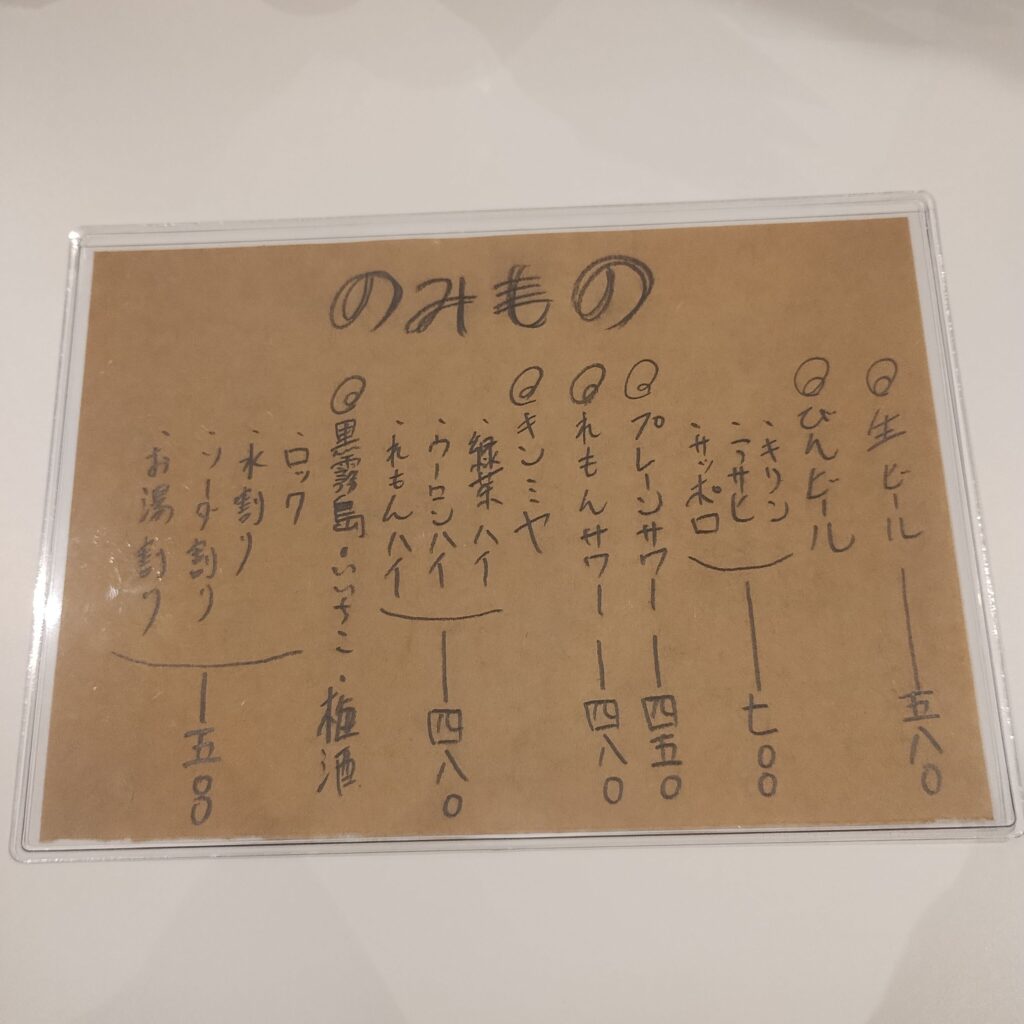 のみもの
生ビール 五八〇
びんビール
・キリン
・アサヒ
・サッポロ
七〇〇
プレーンサワー 四五〇
れもんサワー 四八〇
キンミヤ
・緑茶ハイ
・ウーロンハイ
・れもんハイ
四八〇
黒霧島・いいちこ・梅酒
・ロック
・水割り
・ソーダ割り
・お湯割り
五〇〇